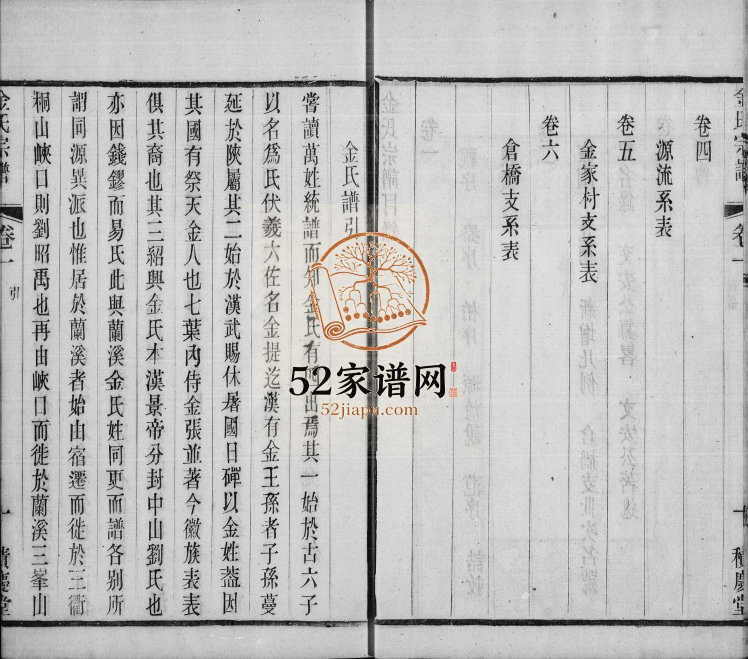 卷四
源流系表
卷五
金家村支系表
卷六
倉橋支系表
金氏宗譜
卷一
種慶堂
金氏譜引
嘗讀萬姓統譜而知金氏有四出焉其一始於古六子
以名爲氏伏羲六佐名金提迄漢有金王孫者子孫蔓
延於陝屬其二始於漢武賜休屠國日磾以金姓蓋因
其國有祭天金人也七葉內侍金張並著今徽族表表
俱其裔也其三紹興金氏本漢景帝分封中山劉氏也
亦因錢鏐而易氏此與蘭溪金氏姓同更而譜各别所
謂同源異派也惟居於蘭溪者始由宿遷而徙於三衢
桐山峽口則劉昭禹也再由峽口而徙於蘭溪三峯山
金氏宗譜
卷一
引
一
積慶堂
52家谱网
52jiapu.com